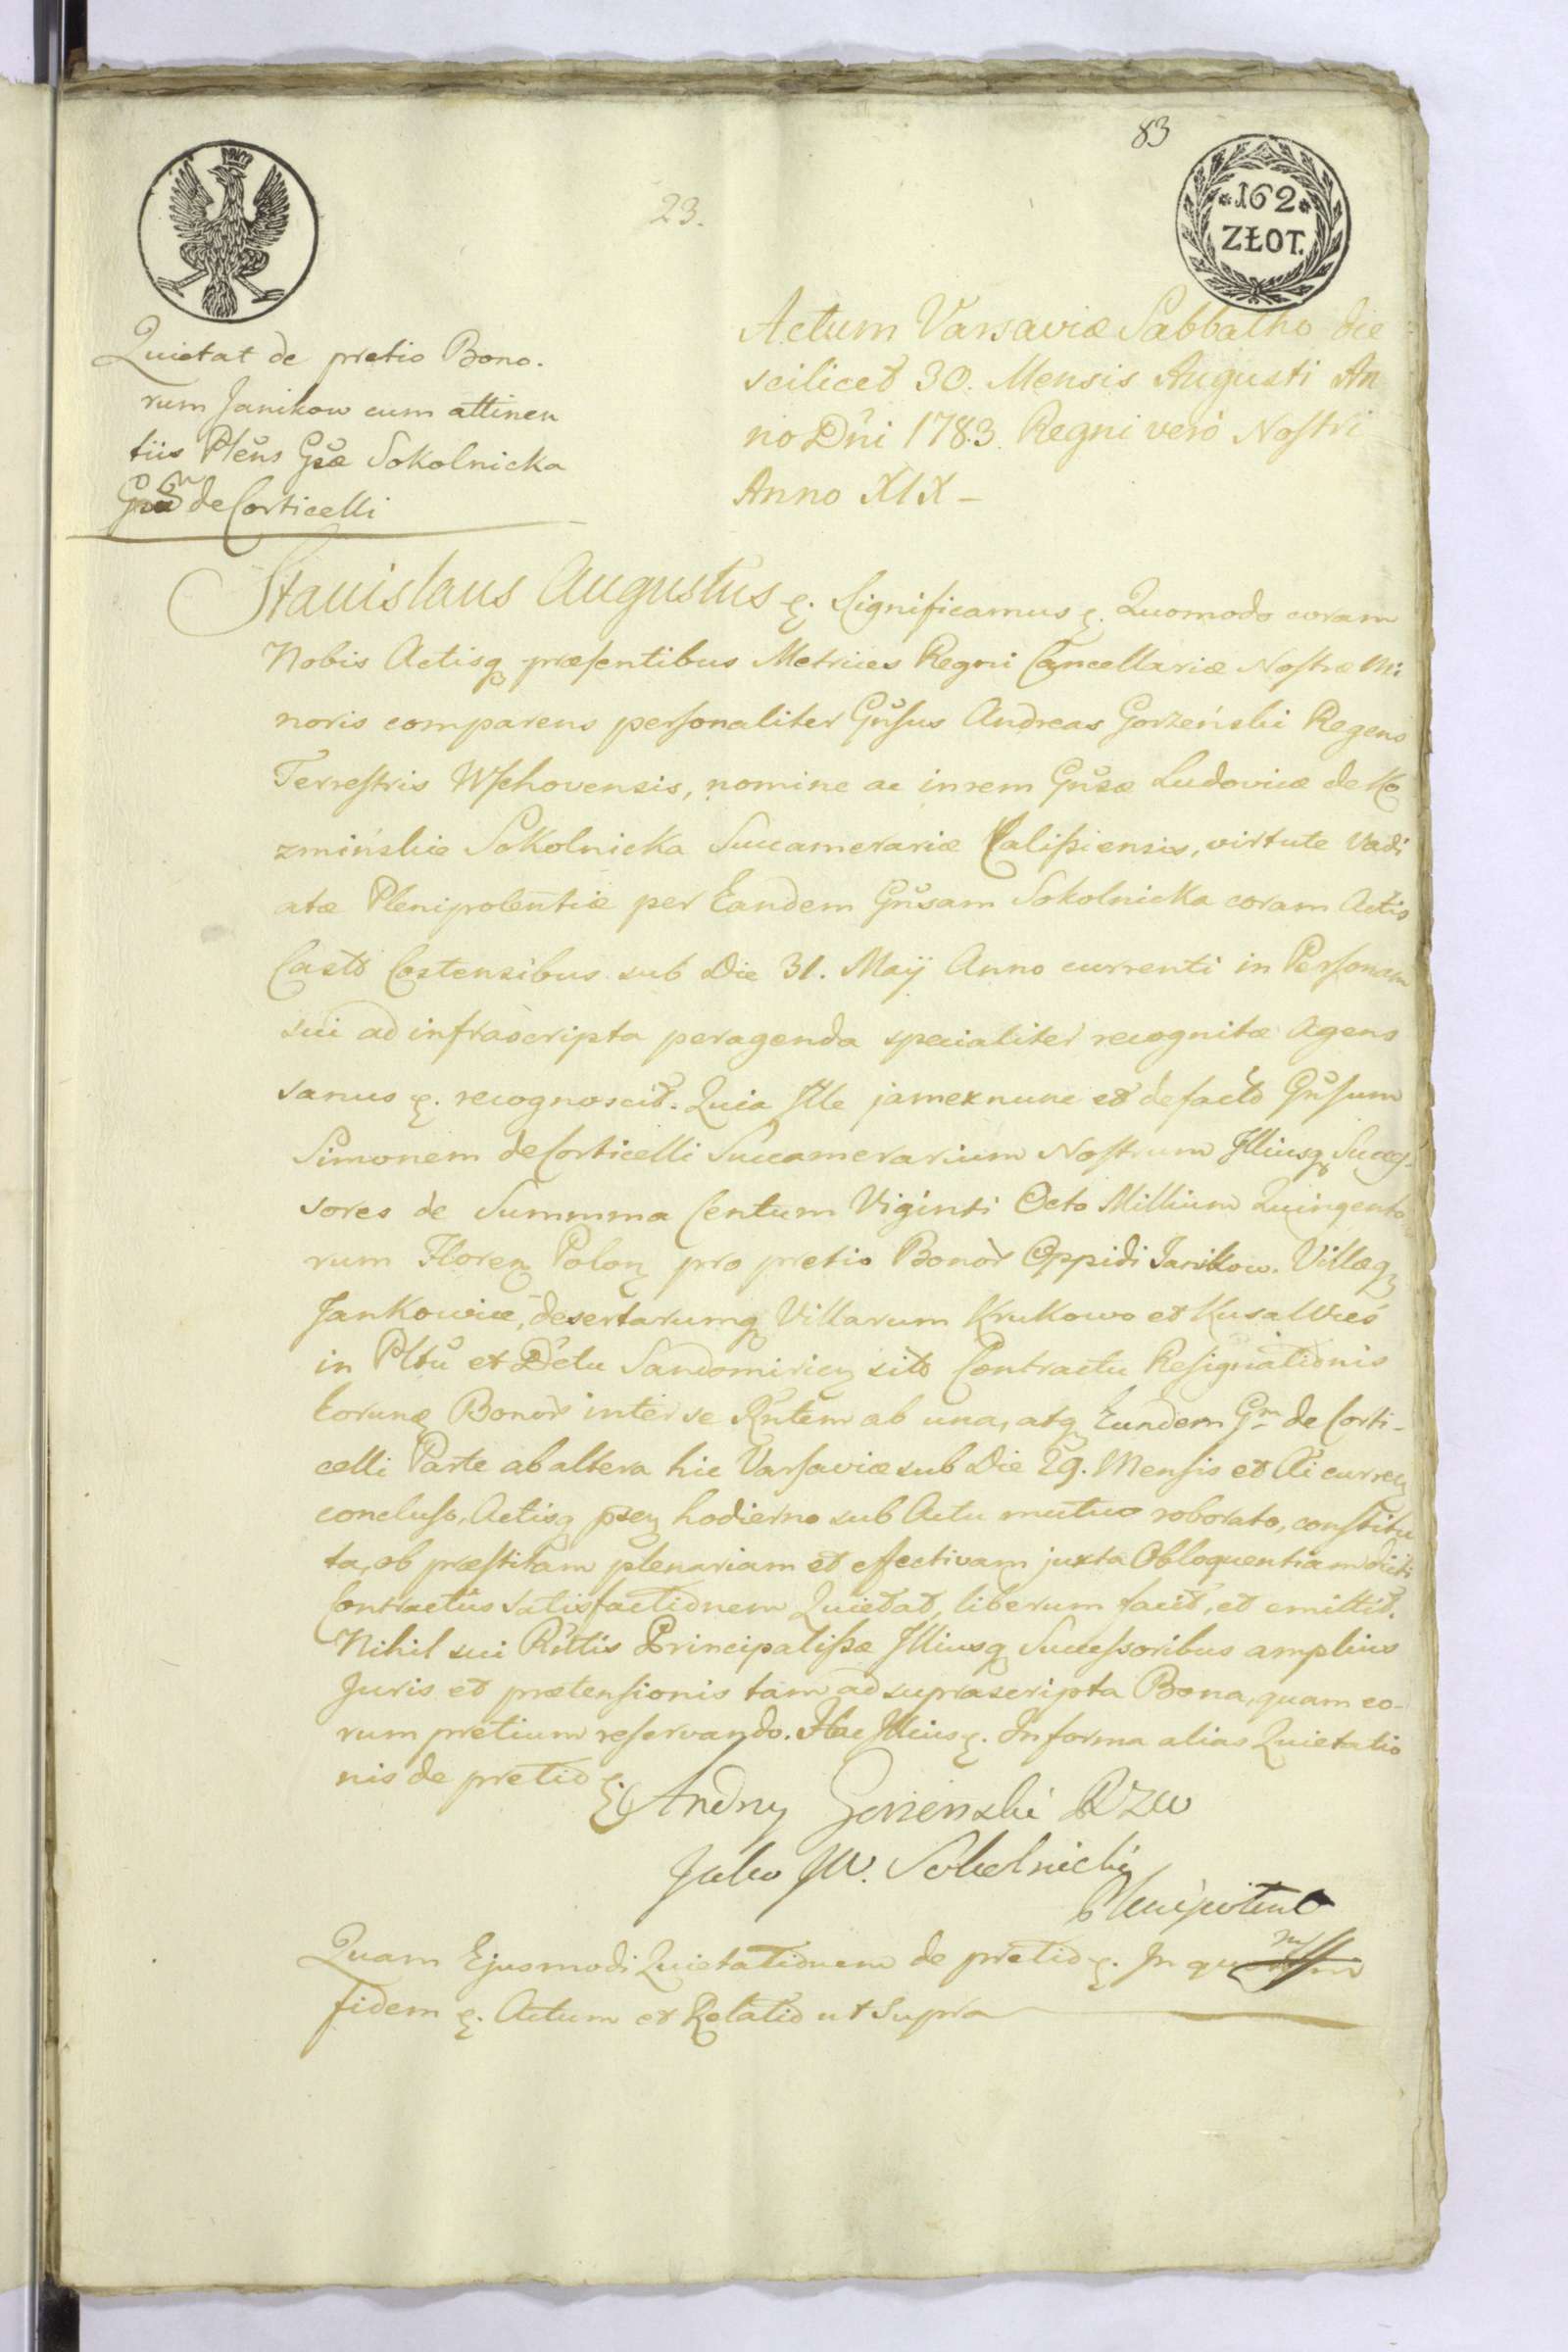 83
23.
*162*
ZŁOT.
Quietat de pretio Bono.
rum Janikow cum attinen
tiis Pleňs Gsæ Sokolnicka
de Corticelli
Actum Varsaviæ Sabbatho die
scilicet 30. Mensis Augusti An
no Dńi 1783. Regni veró Nostri
Anno XIX -
Stanislaus Augustus ę. Significamus ę. Quomodo coram
Nobis Actisq præsentibus Metrices Regni Cancellariæ Nostræ Mi
noris comparens personaliter Gnsus Andreas Gorzeński Regens
Terrestris Wschovensis, nomine ac in rem Gnsæ Ludovicæ de Ko
zmińskie Sokolnicka Succamerariæ Calissiensis, virtute Vadi
atæ Plenipotentiæ per Eandem Gnsam Sokolnicka coram Actis
Casto Costensibus sub Die 31. Maÿ Anno currenti in Personam
sui ad infrascripta peragenda specialiter recognitæ Agens
sanus ę. recognoscit. Quia Ille jam ex nunc et de facto Gnsum
Simonem de Corticelli Succamerarium Nostrum Illiusq Succes-
sores de Summma Centum Viginti Octo Millium Quingento
rum Floreņ Poloņ pro pretio Bonor Oppidi Janikow. Villæq
Jankowice, desertarumq Villarum Krukowo et Kusa Wieś
in Pltu et Dctu Sandomirieņ sito Contractu Resignationis
eorunq Bonor inter se Rntem ab una, atq Eundem Gm de Corti-
celli Parte ab altera hic Varsaviæ sub Die 29. Mensis et Ai curreņ
concluso, Actisq pseņ hodierno sub Actu mutuo roborato, constitu
ta, ob præstitam plenariam et effectivam juxta Obloquentiam dicti
Contractus satisfactionem Quietat, liberum facit, et emittit.
Nihil sui Rntis Principalissæ Illiusq Successoribus amplius
Juris et prætensionis tam ad suprascripta Bona, quam eo-
rum pretium reservando. Hac Illius ę. In forma alias Quietatio
nis de pretio ę.
Andrzy Gorzenski RZW
Jako JW. Sokolnickiy
Plenipotent
Quam Ejusmodi Quietationem de pretio ę. In
fidem ę. Actum et Relatio ut Supra